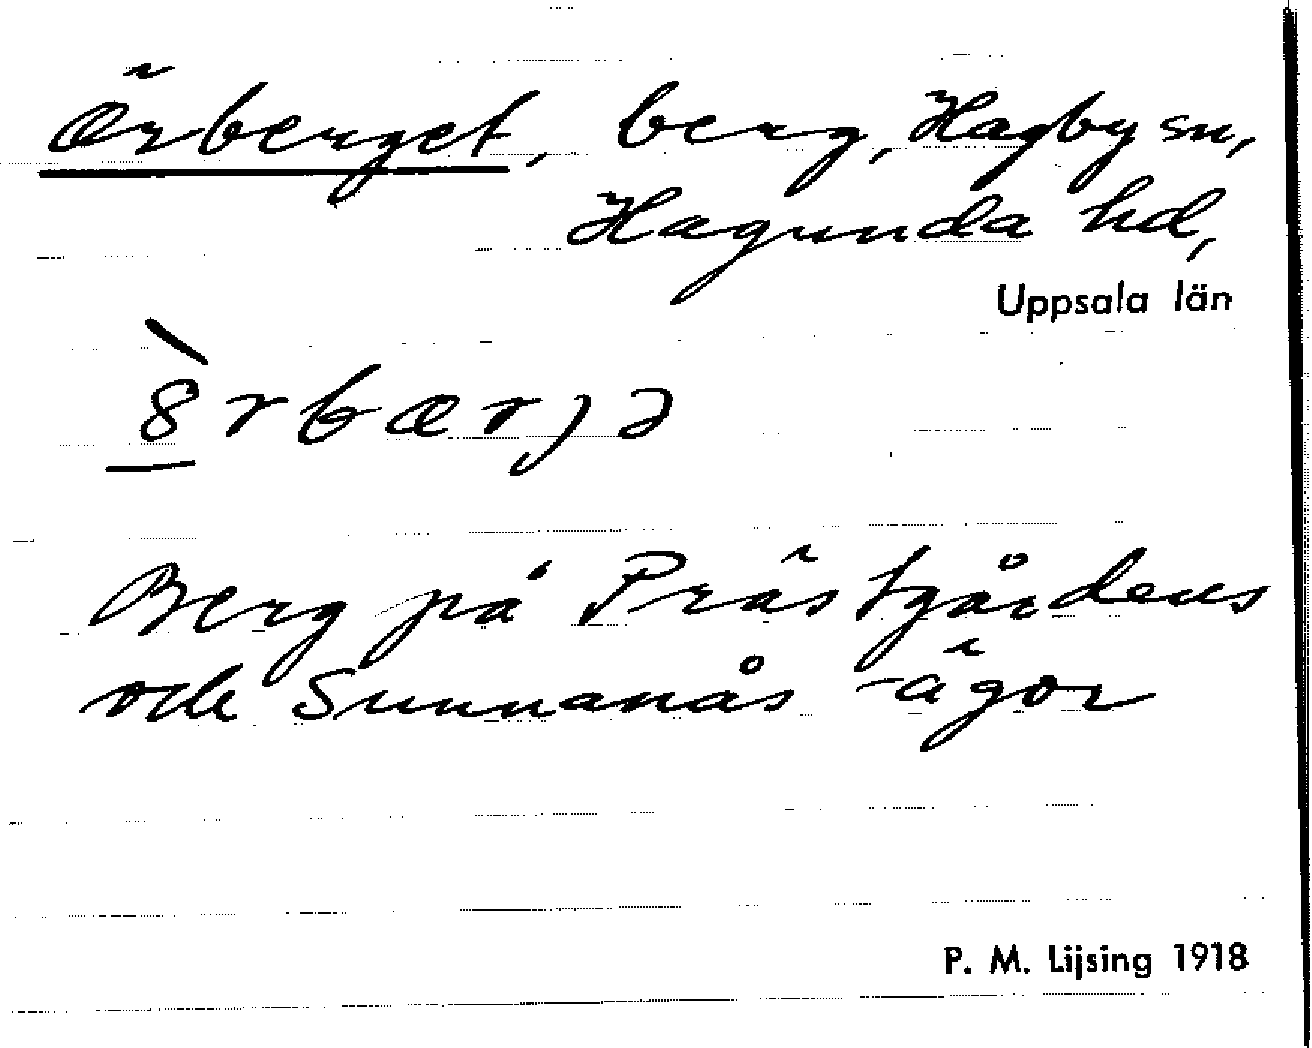 Örberget, berg, Hagby sn,
Hagunda hd,
Uppsala län
8̀rbærjə
Berg på Prästgårdens
och Sunnanås ägor
P. M. Lijsing 1918